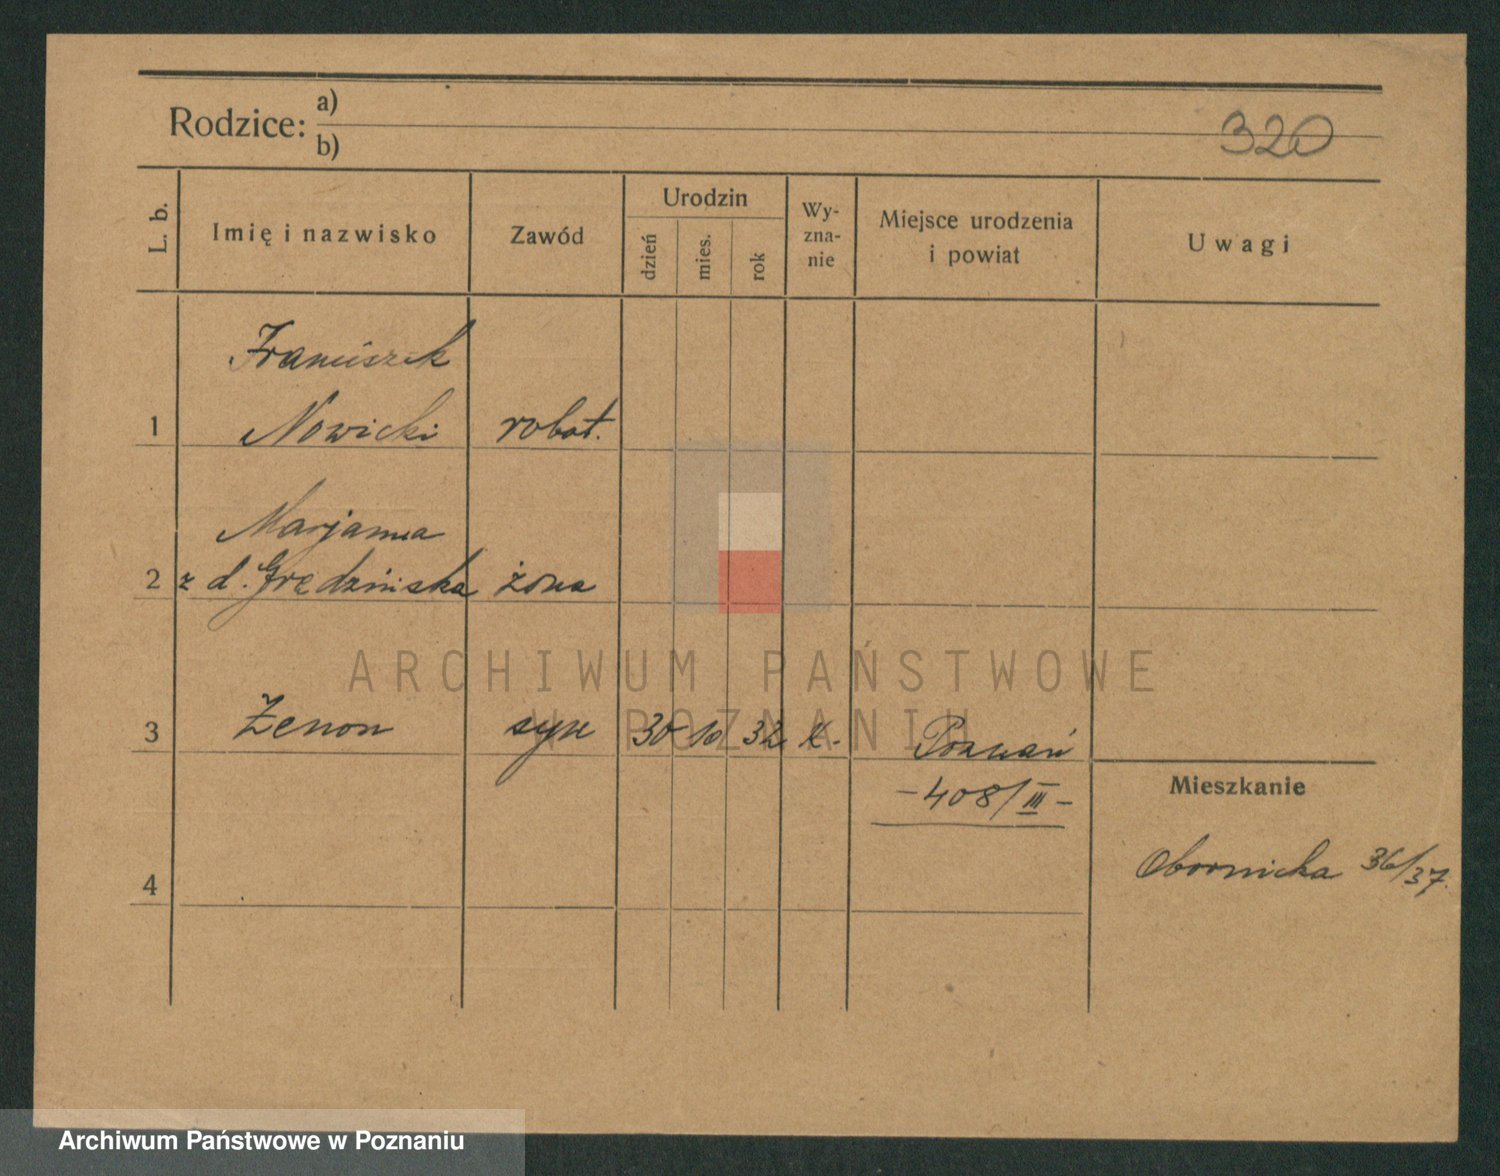 Rodzice:
a)
b)
320
L. b.
Imię i nazwisko
Zawód
Urodzin
dzień
mies.
rok
Wy-
zna-
nie
Miejsce urodzenia
i powiat
Uwagi
Franciszek
1 Nowicki robot.
Marjanna
2 z d. Grędzińska żona
3 Zenon syn 30 10 32 k. Poznań
-408/III-
Mieszkanie
Obornicka 36/37.
4
ARCHIWUM PAŃSTWOWE
W POZNANIU
Archiwum Państwowe w Poznaniu